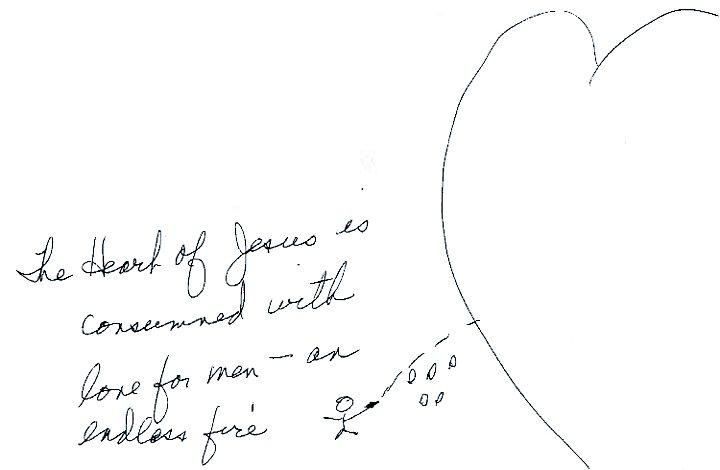 The Heart of Jesus is
consumned with
love for men – an
endless fire